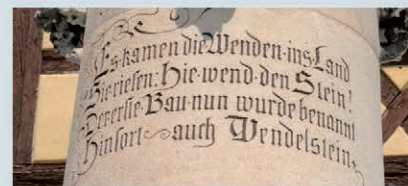 Es·kamen·die·Wenden·ins·Land
Sie·riefen: Hie·wend·den Stein!
Der·erste·Bau·nun wurde·benannt
Hinfort auch Wendelstein.